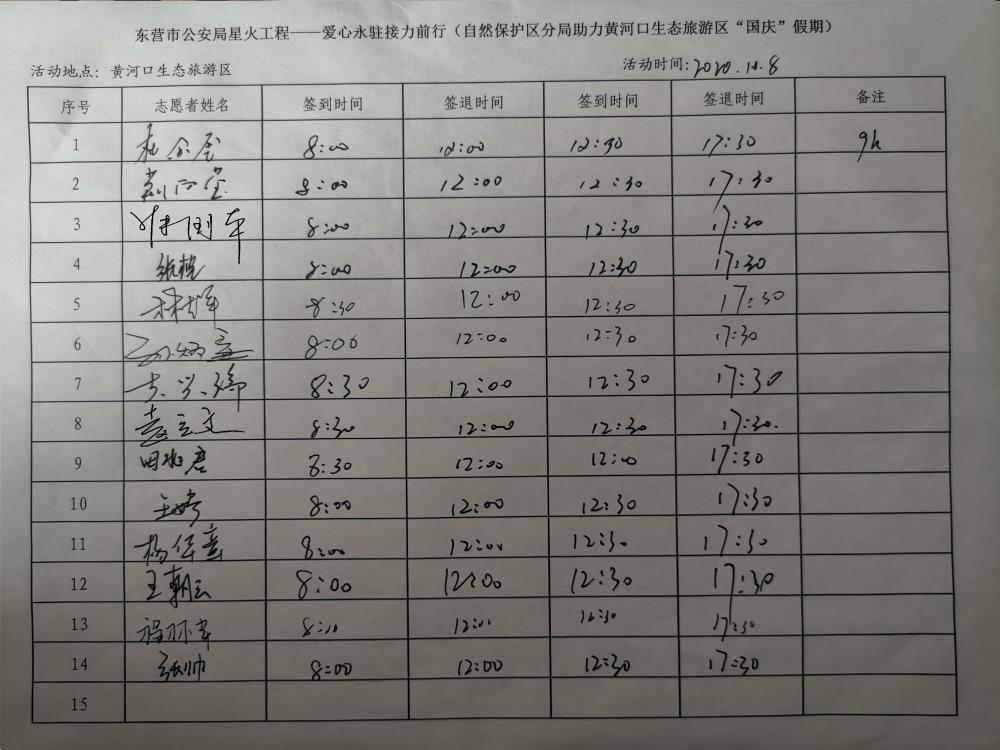 东营市公安局星火工程——爱心永驻接力前行（自然保护区分局助力黄河口生态旅游区“国庆”假期）
活动地点：黄河口生态旅游区 活动时间：2020.10.8
序号 志愿者姓名 签到时间 签退时间 签到时间 签退时间 备注
1 8:00 12:00 12:30 17:30 9h
2 8:00 12:00 12:30 17:30
3 8:00 12:00 12:30 17:30
4 张艳 8:00 12:00 12:30 17:30
5 8:30 12:00 12:30 17:30
6 8:00 12:00 12:30 17:30
7 8:30 12:00 12:30 17:30
8 袁立文 8:30 12:00 12:30 17:30.
9 田兆君 8:30 12:00 12:00 17:30
10 王婷 8:00 12:00 12:30 17:30
11 杨华意 8:00 12:00 12:30 17:30
12 王朝云 8:00 12:00 12:30 17:30
13 8:00 12:00 12:30 17:30
14 张帅 8:00 12:00 12:30 17:30
15